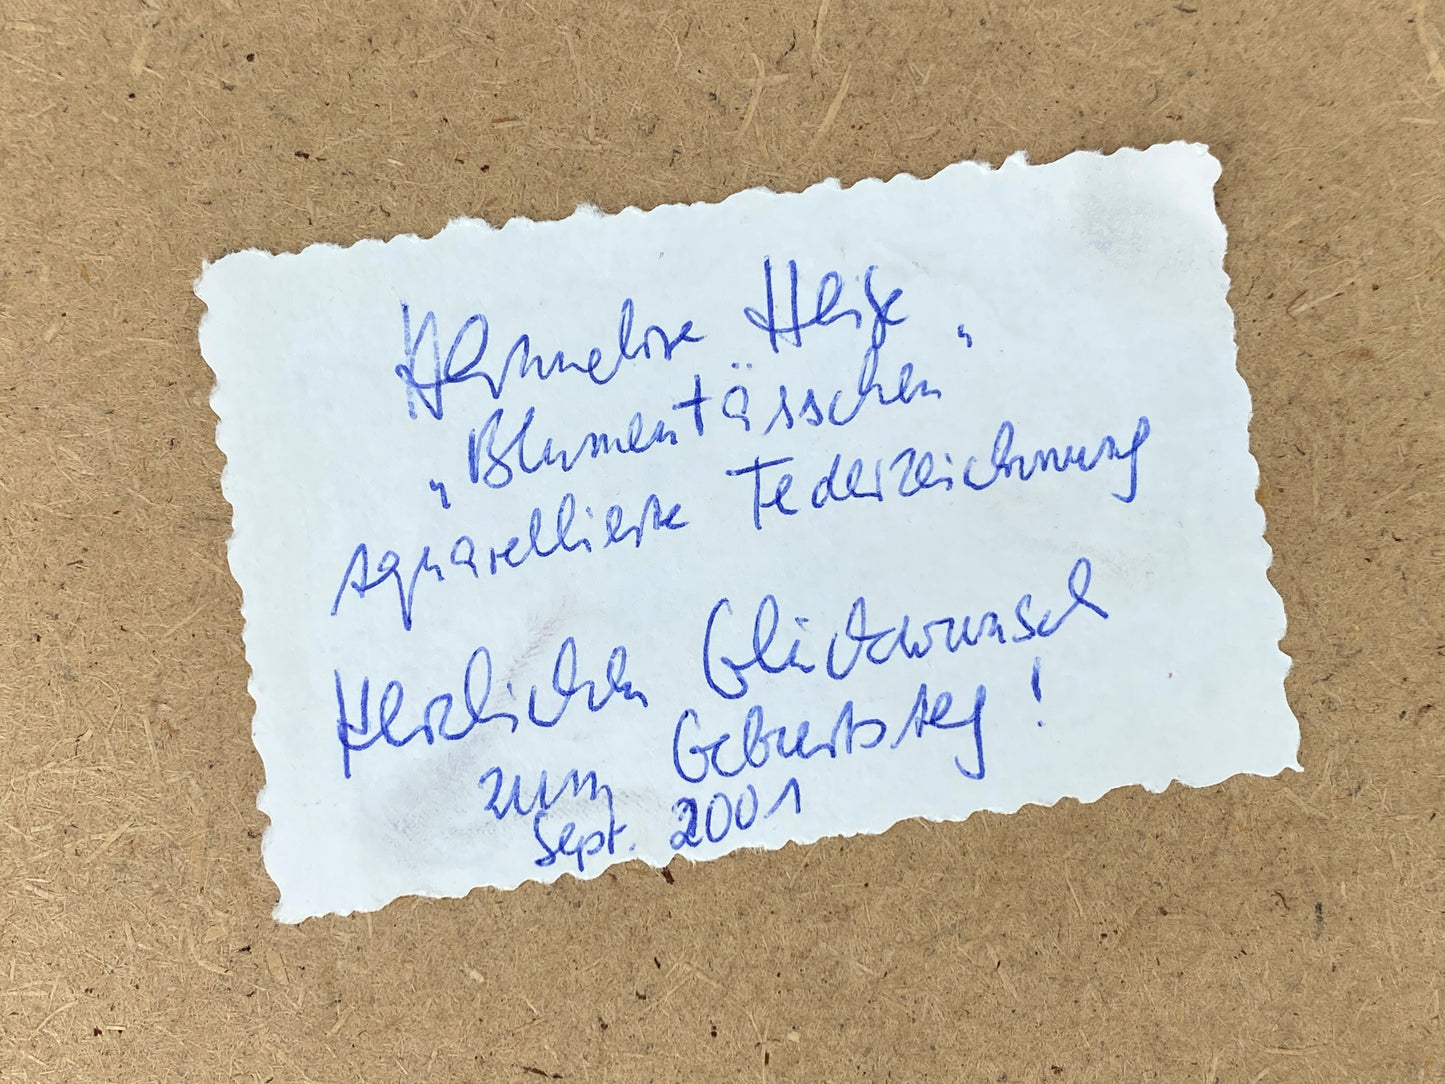 Hannelore Heise
„Blumentässchen"
aquarellierte Federzeichnung
Herzlichen Glückwunsch
zum Geburtstag!
Sept. 2001